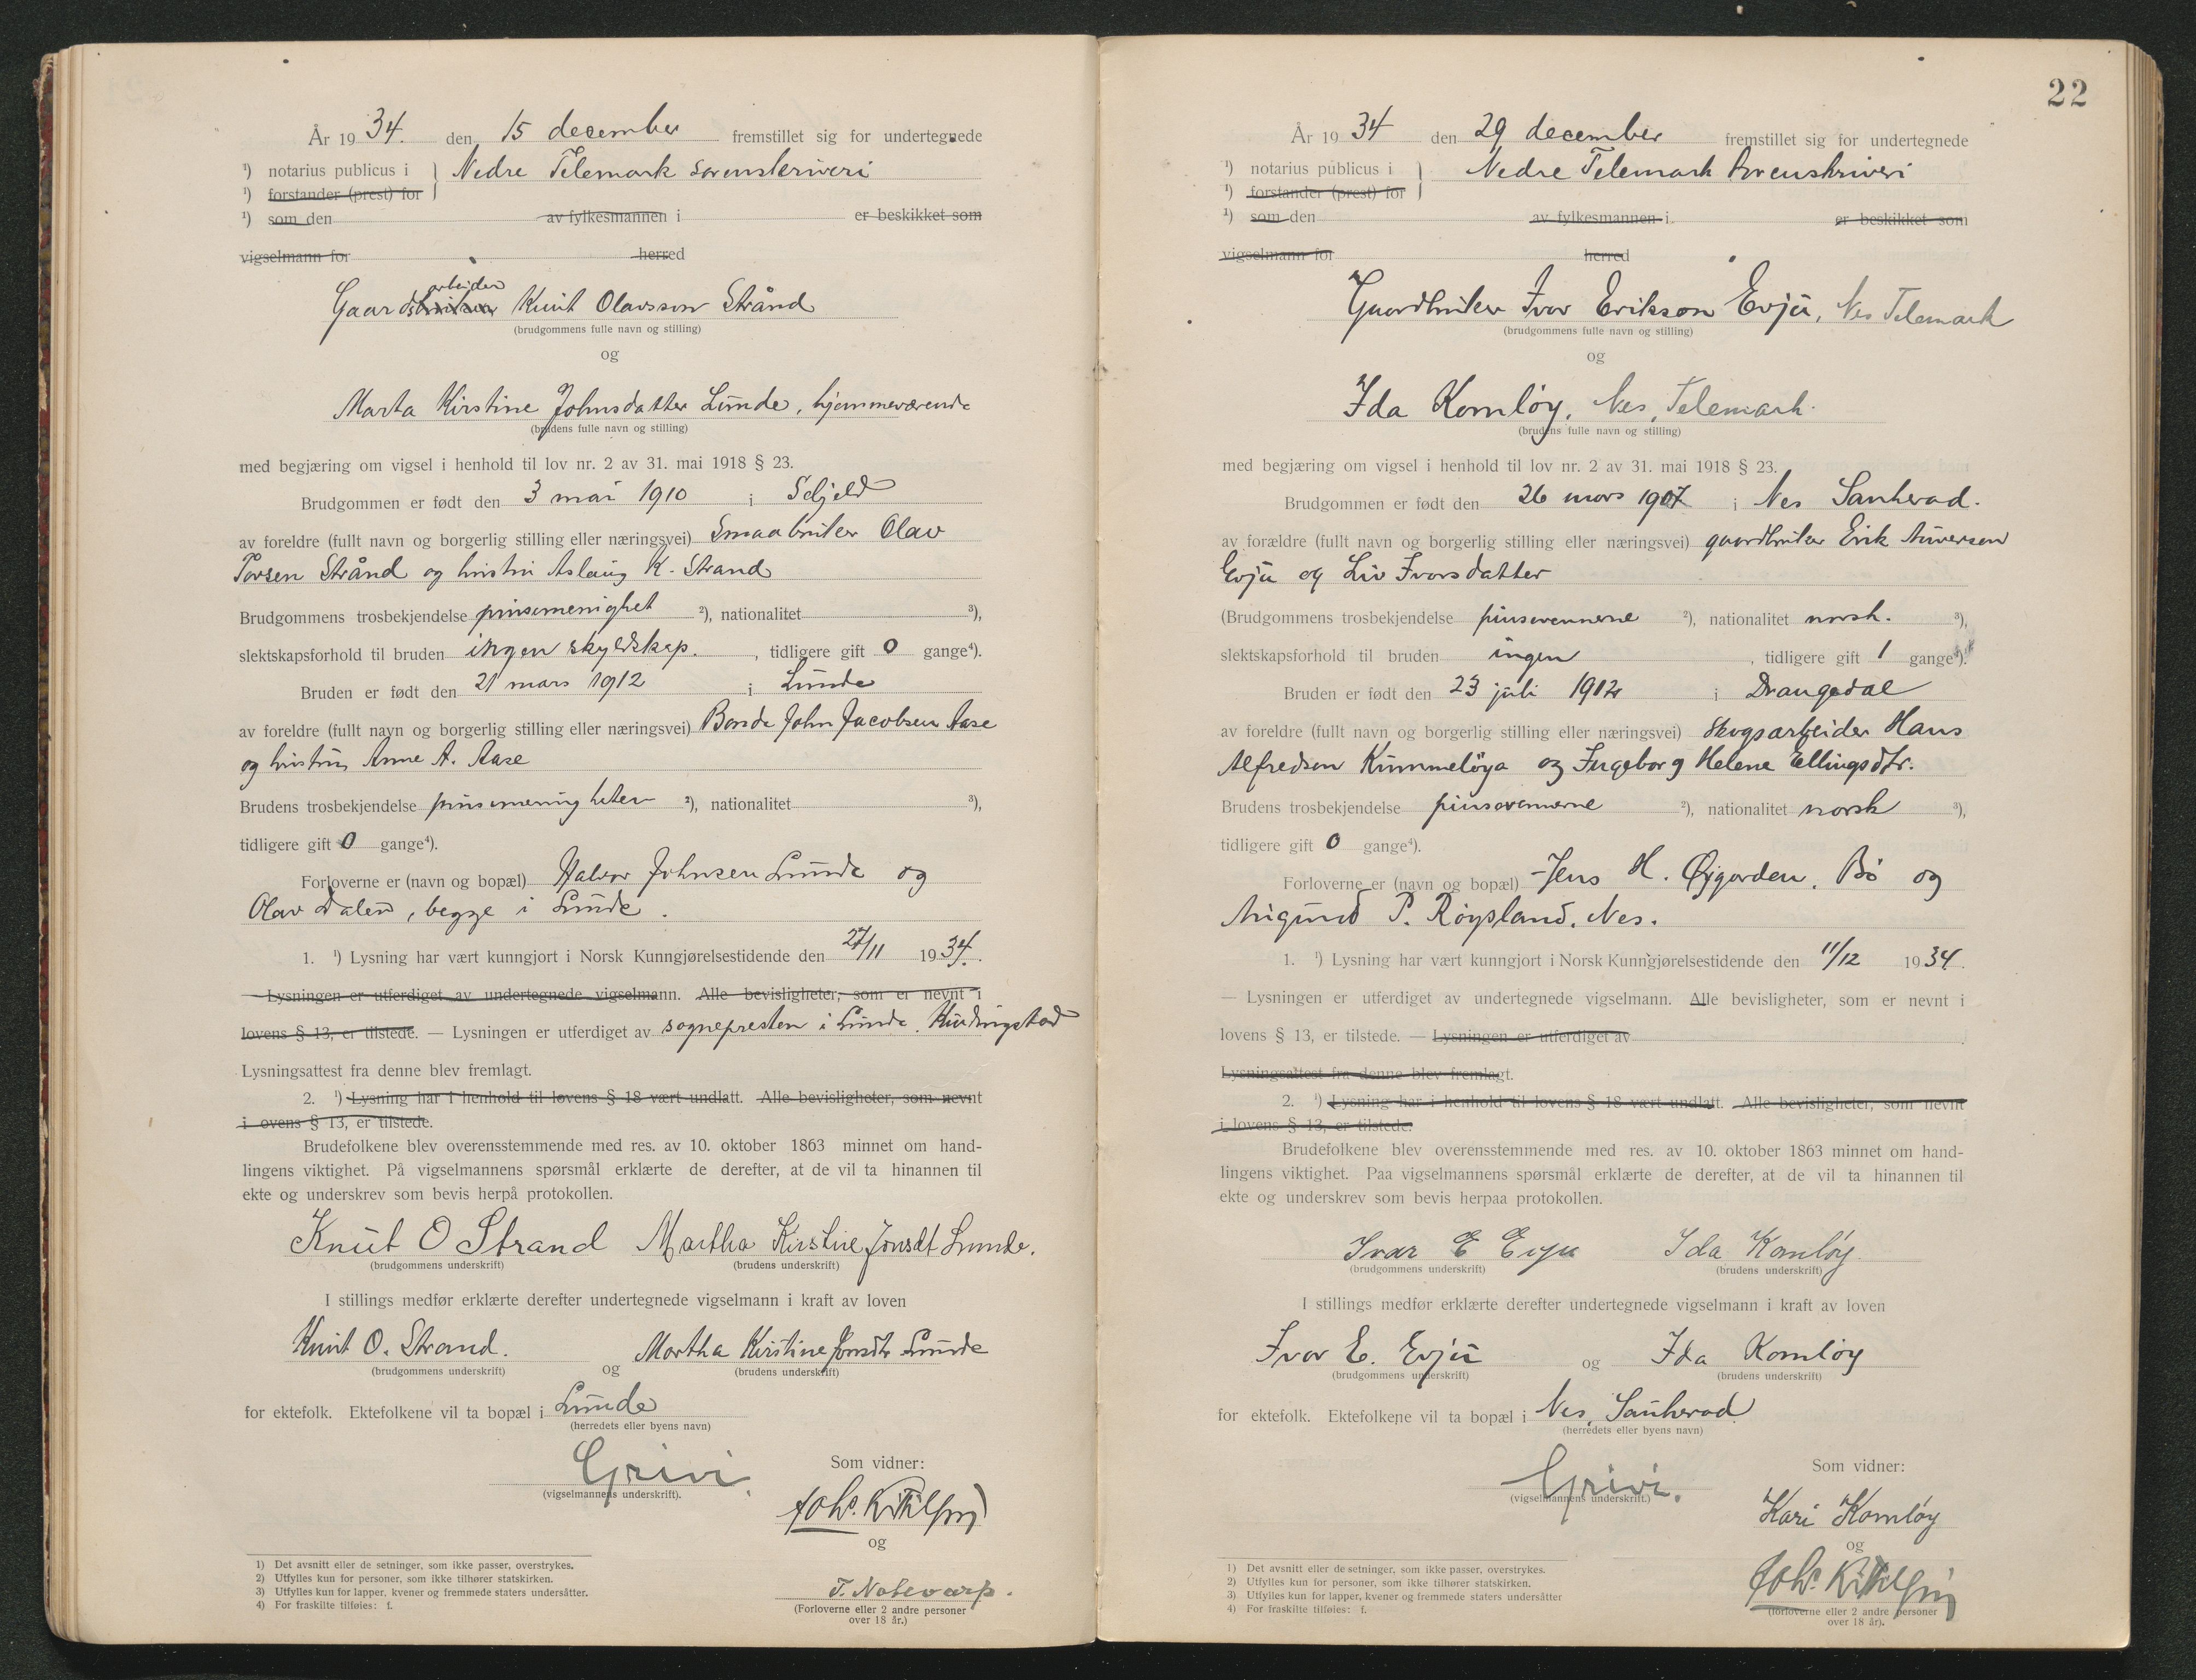 År 1934. den 15 december fremstillet sig for undertegnede
¹) notarius publicus i } Nedre Telemark sorenskriveri
¹) forstander (prest) for
¹) som den av fylkesmannen i er beskikket som
vigselmann for herred
arbeider
Gaardsbruker Knut Olavsson Strånd
(brudgommens fulle navn og stilling)
og
Marta Kirstine Johnsdatter Lunde, hjemmeværende
(brudens fulle navn og stilling)
med begjæring om vigsel i henhold til lov nr. 2 av 31. mai 1918 § 23.
Brudgommen er født den 3 mai 1910 i Seljord
av foreldre (fullt navn og borgerlig stilling eller næringsvei) Smaabruker Olav
Torsen Strånd og hustru Aslaug K. Strand
Brudgommens trosbekjendelse pinsemenighet ²), nationalitet ³),
slektskapsforhold til bruden ingen skyldskap. , tidligere gift 0 gange⁴).
Bruden er født den 21 mars 1912 i Lunde
av foreldre (fullt navn og borgerlig stilling eller næringsvei) Bonde John Jacobsen Aase
og hustru Anne A. Aase
Brudens trosbekjendelse pinsemenigheten ²), nationalitet ³),
tidligere gift 0 gange⁴).
Forloverne er (navn og bopæl) Halvor Johnsen Lunde og
Olav Dalen, begge i Lunde.
1. ¹) Lysning har vært kunngjort i Norsk Kunngjørelsestidende den 27/11 1934.
— Lysningen er utferdiget av undertegnede vigselmann. Alle bevisligheter, som er nevnt i
lovens § 13, er tilstede. — Lysningen er utferdiget av sognepresten i Lunde.
Lysningsattest fra denne blev fremlagt.
2. ¹) Lysning har i henhold til lovens § 18 vært undlatt. Alle bevisligheter, som nevnt
i ovens § 13, er tilstede.
Brudefolkene blev overensstemmende med res. av 10. oktober 1863 minnet om hand-
lingens viktighet. På vigselmannens spørsmål erklærte de derefter, at de vil ta hinannen til
ekte og underskrev som bevis herpå protokollen.
Knut O Strand Martha Kirstine Jonsdt Lunde.
(brudgommens underskrift) (brudens underskrift)
I stillings medfør erklærte derefter undertegnede vigselmann i kraft av loven
Knut O. Strand. og Martha Kirstine Jonsdtr Lunde
(brudgommens underskrift) (brudens underskrift)
for ektefolk. Ektefolkene vil ta bopæl i Lunde
(herredets eller byens navn)
Grivi.
(vigselmannens underskrift).
Som vidner:
Johs. Kittilsen
og
T. Notevarp.
(Forloverne eller 2 andre personer
over 18 år.)
1) Det avsnitt eller de setninger, som ikke passer, overstrykes.
2) Utfylles kun for personer, som ikke tilhører statskirken.
3) Utfylles kun for lapper, kvener og fremmede staters undersåtter.
4) For fraskilte tilføies: f.
22
År 1934 den 29 december fremstillet sig for undertegnede
¹) notarius publicus i } Nedre Telemark sorenskriveri
¹) forstander (prest) for
¹) som den av fylkesmannen i er beskikket som
vigselmann for herred
Gaardbruker Ivar Erikson Evju, Nes Telemark
(brudgommens fulle navn og stilling)
og
Ida Komløy, Nes, Telemark.
(brudens fulle navn og stilling)
med begjæring om vigsel i henhold til lov nr. 2 av 31. mai 1918 § 23.
Brudgommen er født den 26 mars 1907 i Nes Sauherad.
av forældre (fullt navn og borgerlig stilling eller næringsvei) gaardbruker Erik
Evju og Liv Ivarsdatter
(Brudgommens trosbekjendelse pinsevennerne ²), nationalitet norsk. ³),
slektskapsforhold til bruden ingen , tidligere gift 1 gange⁴).
Bruden er født den 23 juli 1912 i Drangedal
av foreldre (fullt navn og borgerlig stilling eller næringsvei) skogsarbeider Hans
Alfredsen Kummeløya og Ingeborg Helene Ellingsdtr.
Brudens trosbekjendelse pinsevennerne ²), nationalitet norsk ³),
tidligere gift 0 gange⁴).
Forloverne er (navn og bopæl) Jens H. Øygarden, Bø og
P. Røysland, Nes.
1. ¹) Lysning har vært kunngjort i Norsk Kunngjørelsestidende den 11/12 1934.
— Lysningen er utferdiget av undertegnede vigselmann. Alle bevisligheter, som er nevnt i
lovens § 13, er tilstede. — Lysningen er utferdiget av
Lysningsattest fra denne blev fremlagt.
2. ¹) Lysning har i henhold til lovens § 18 vært undlatt. Alle bevisligheter, som nevnt
i lovens § 13, er tilstede.
Brudefolkene blev overensstemmende med res. av 10. oktober 1863 minnet om hand-
lingens viktighet. Paa vigselmannens spørsmål erklærte de derefter, at de vil ta hinannen til
ekte og underskrev som bevis herpaa protokollen.
Ivar E Evju Ida Komløy
(brudgommens underskrift) (brudens underskrift)
I stillings medfør erklærte derefter undertegnede vigselmann i kraft av loven
Ivar E. Evju og Ida Komløy
(brudgommens underskrift) (brudens underskrift)
for ektefolk. Ektefolkene vil ta bopæl i Nes, Sauherad
(herredets eller byens navn)
Grivi.
(vigselmannens underskrift.)
Som vidner:
Kari Komløy
og
Johs. Kittilsen
(forloverne eller 2 andre personer
over 18 år).
1) Det avsnitt eller de setninger, som ikke passer, overstrykes.
2) Utfylles kun for personer, som ikke tilhører statskirken.
3) Utfylles kun for lapper, kvener og fremmede staters undersåtter
4) For fraskilte tilføies: f.